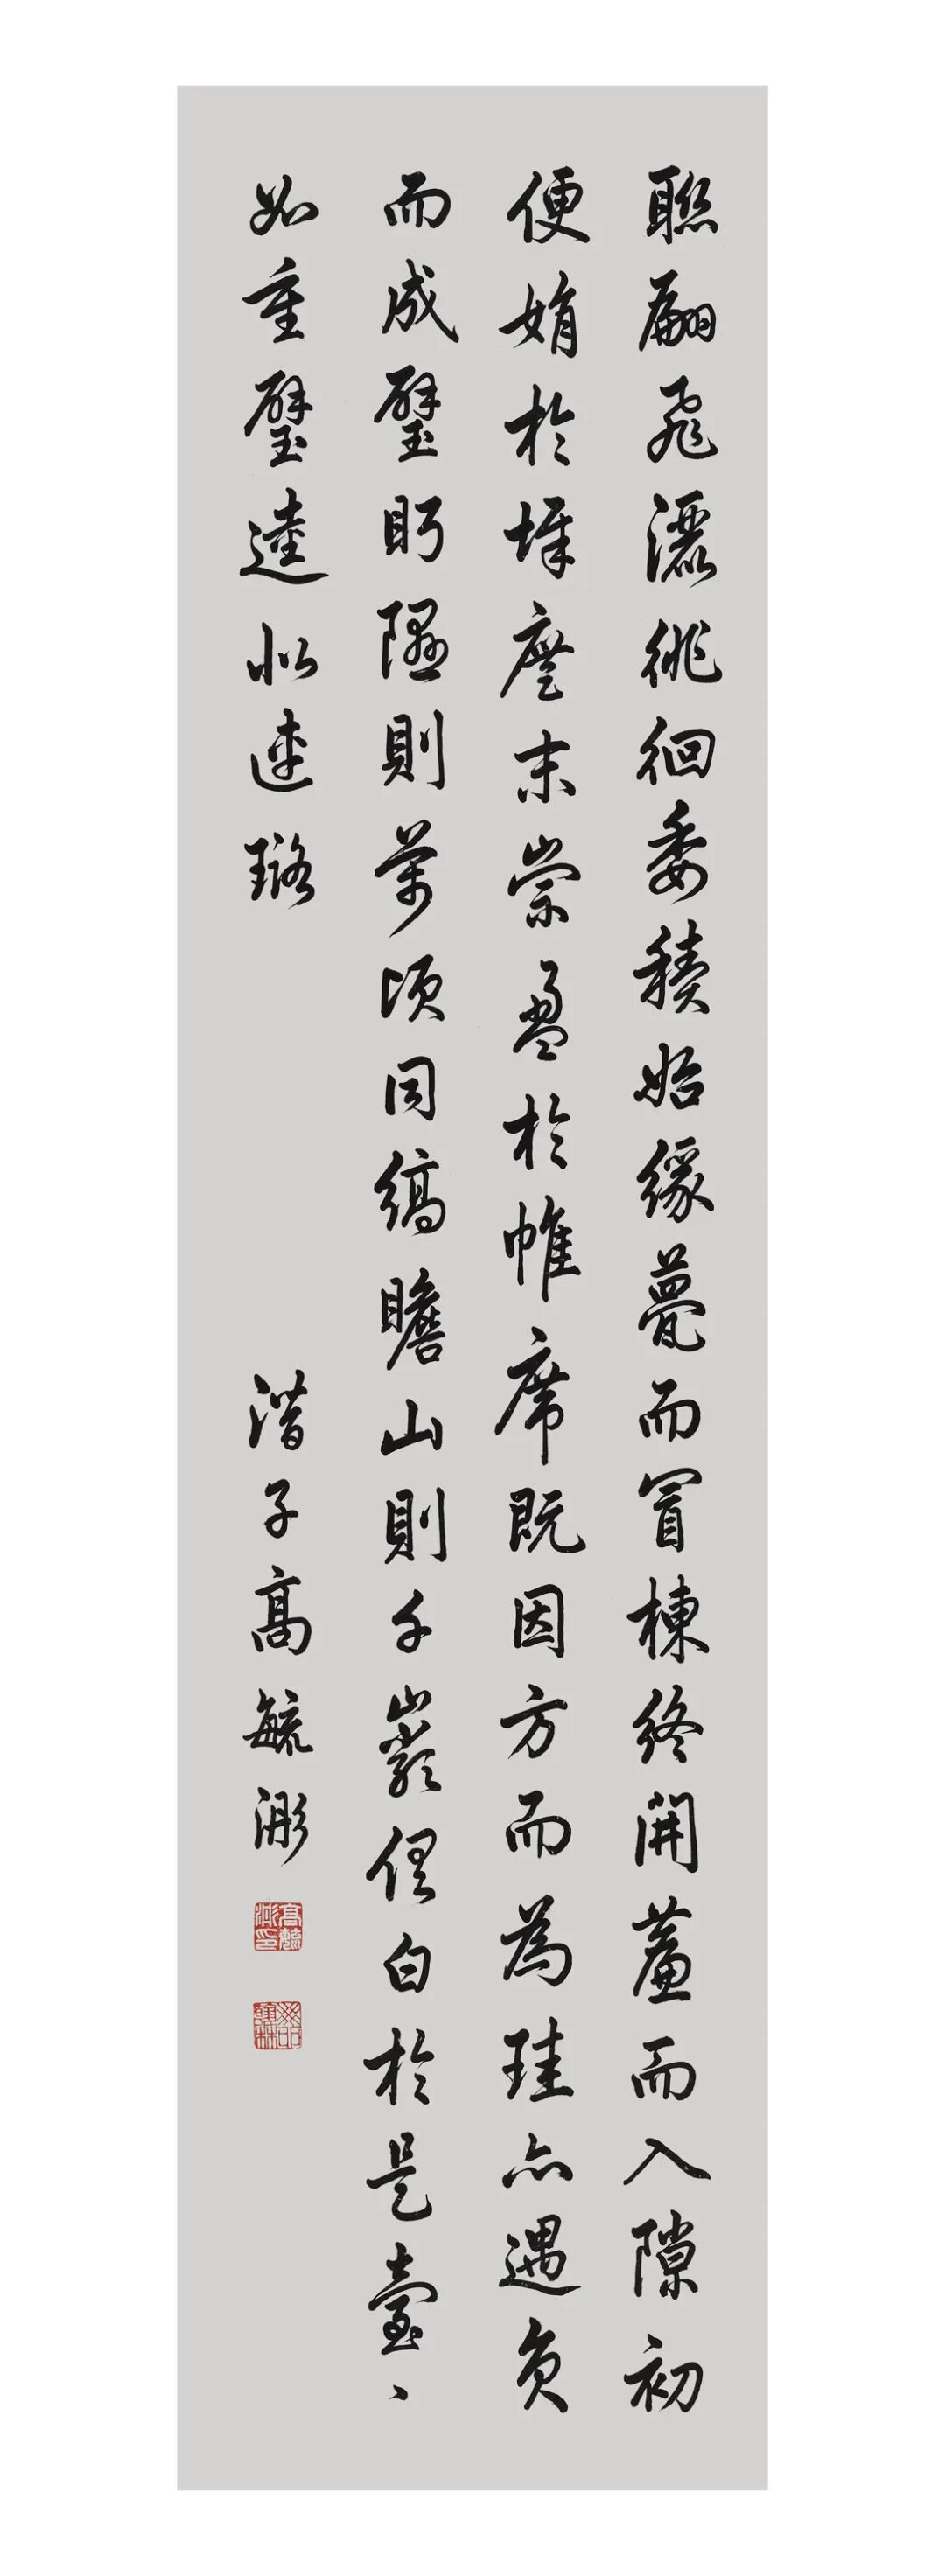 聯翩飛灑徘徊委積始緣甍而冒棟終開簾而入隙初
便娟於墀廡末崇盈於帷席既因方而為珪亦遇員
而成璧眄隰則萬頃同縞瞻山則千巖俱白於是臺、
如重璧逵似連璐
潛子高毓浵
高毓浵印